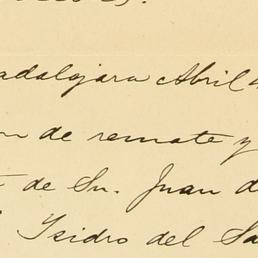 adalajara Abril
n de remate y
de Sn. Juan d
Ysidro del Sa